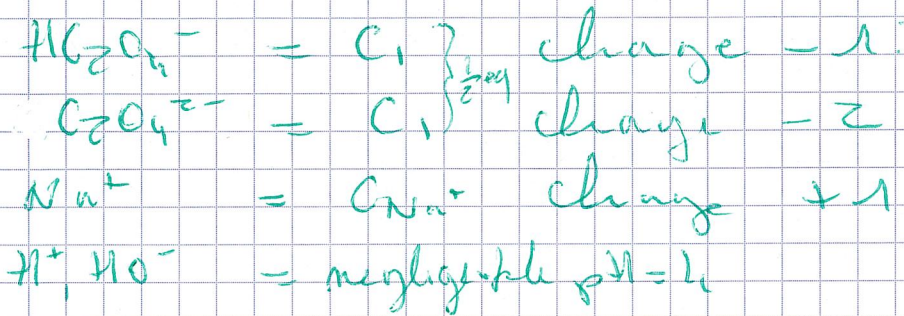 HC₂O₄⁻ = C₁ } charge - 1
C₂O₄²⁻ = C₁ } ½ eq charge - 2
Na⁺ = C_Na⁺ charge + 1
H⁺, HO⁻ = negligeable pH = 4